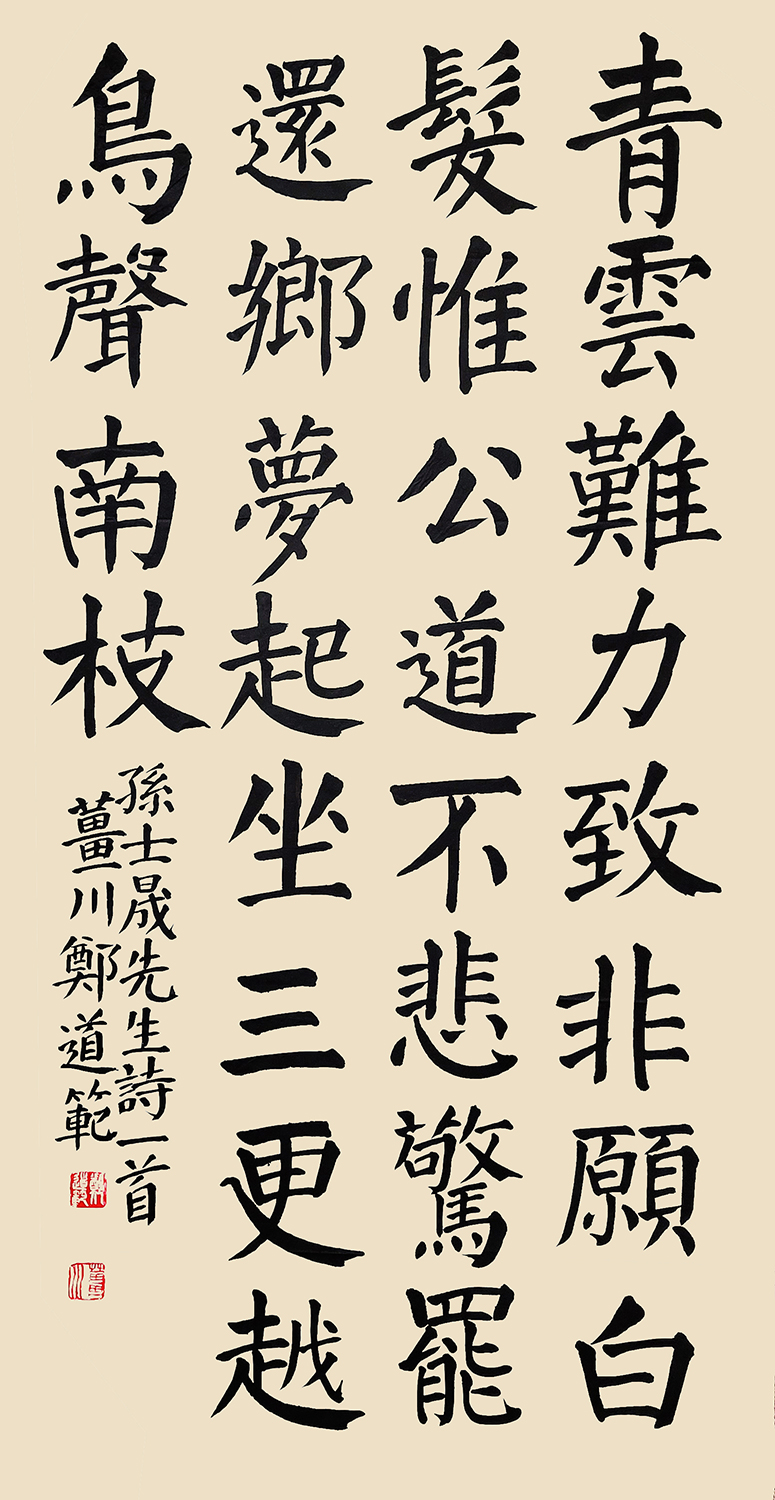 青雲難力致非願白
髮惟公道不悲驚罷
還鄉夢起坐三更越
鳥聲南枝
孫士晟先生詩一首
薑川鄭道範